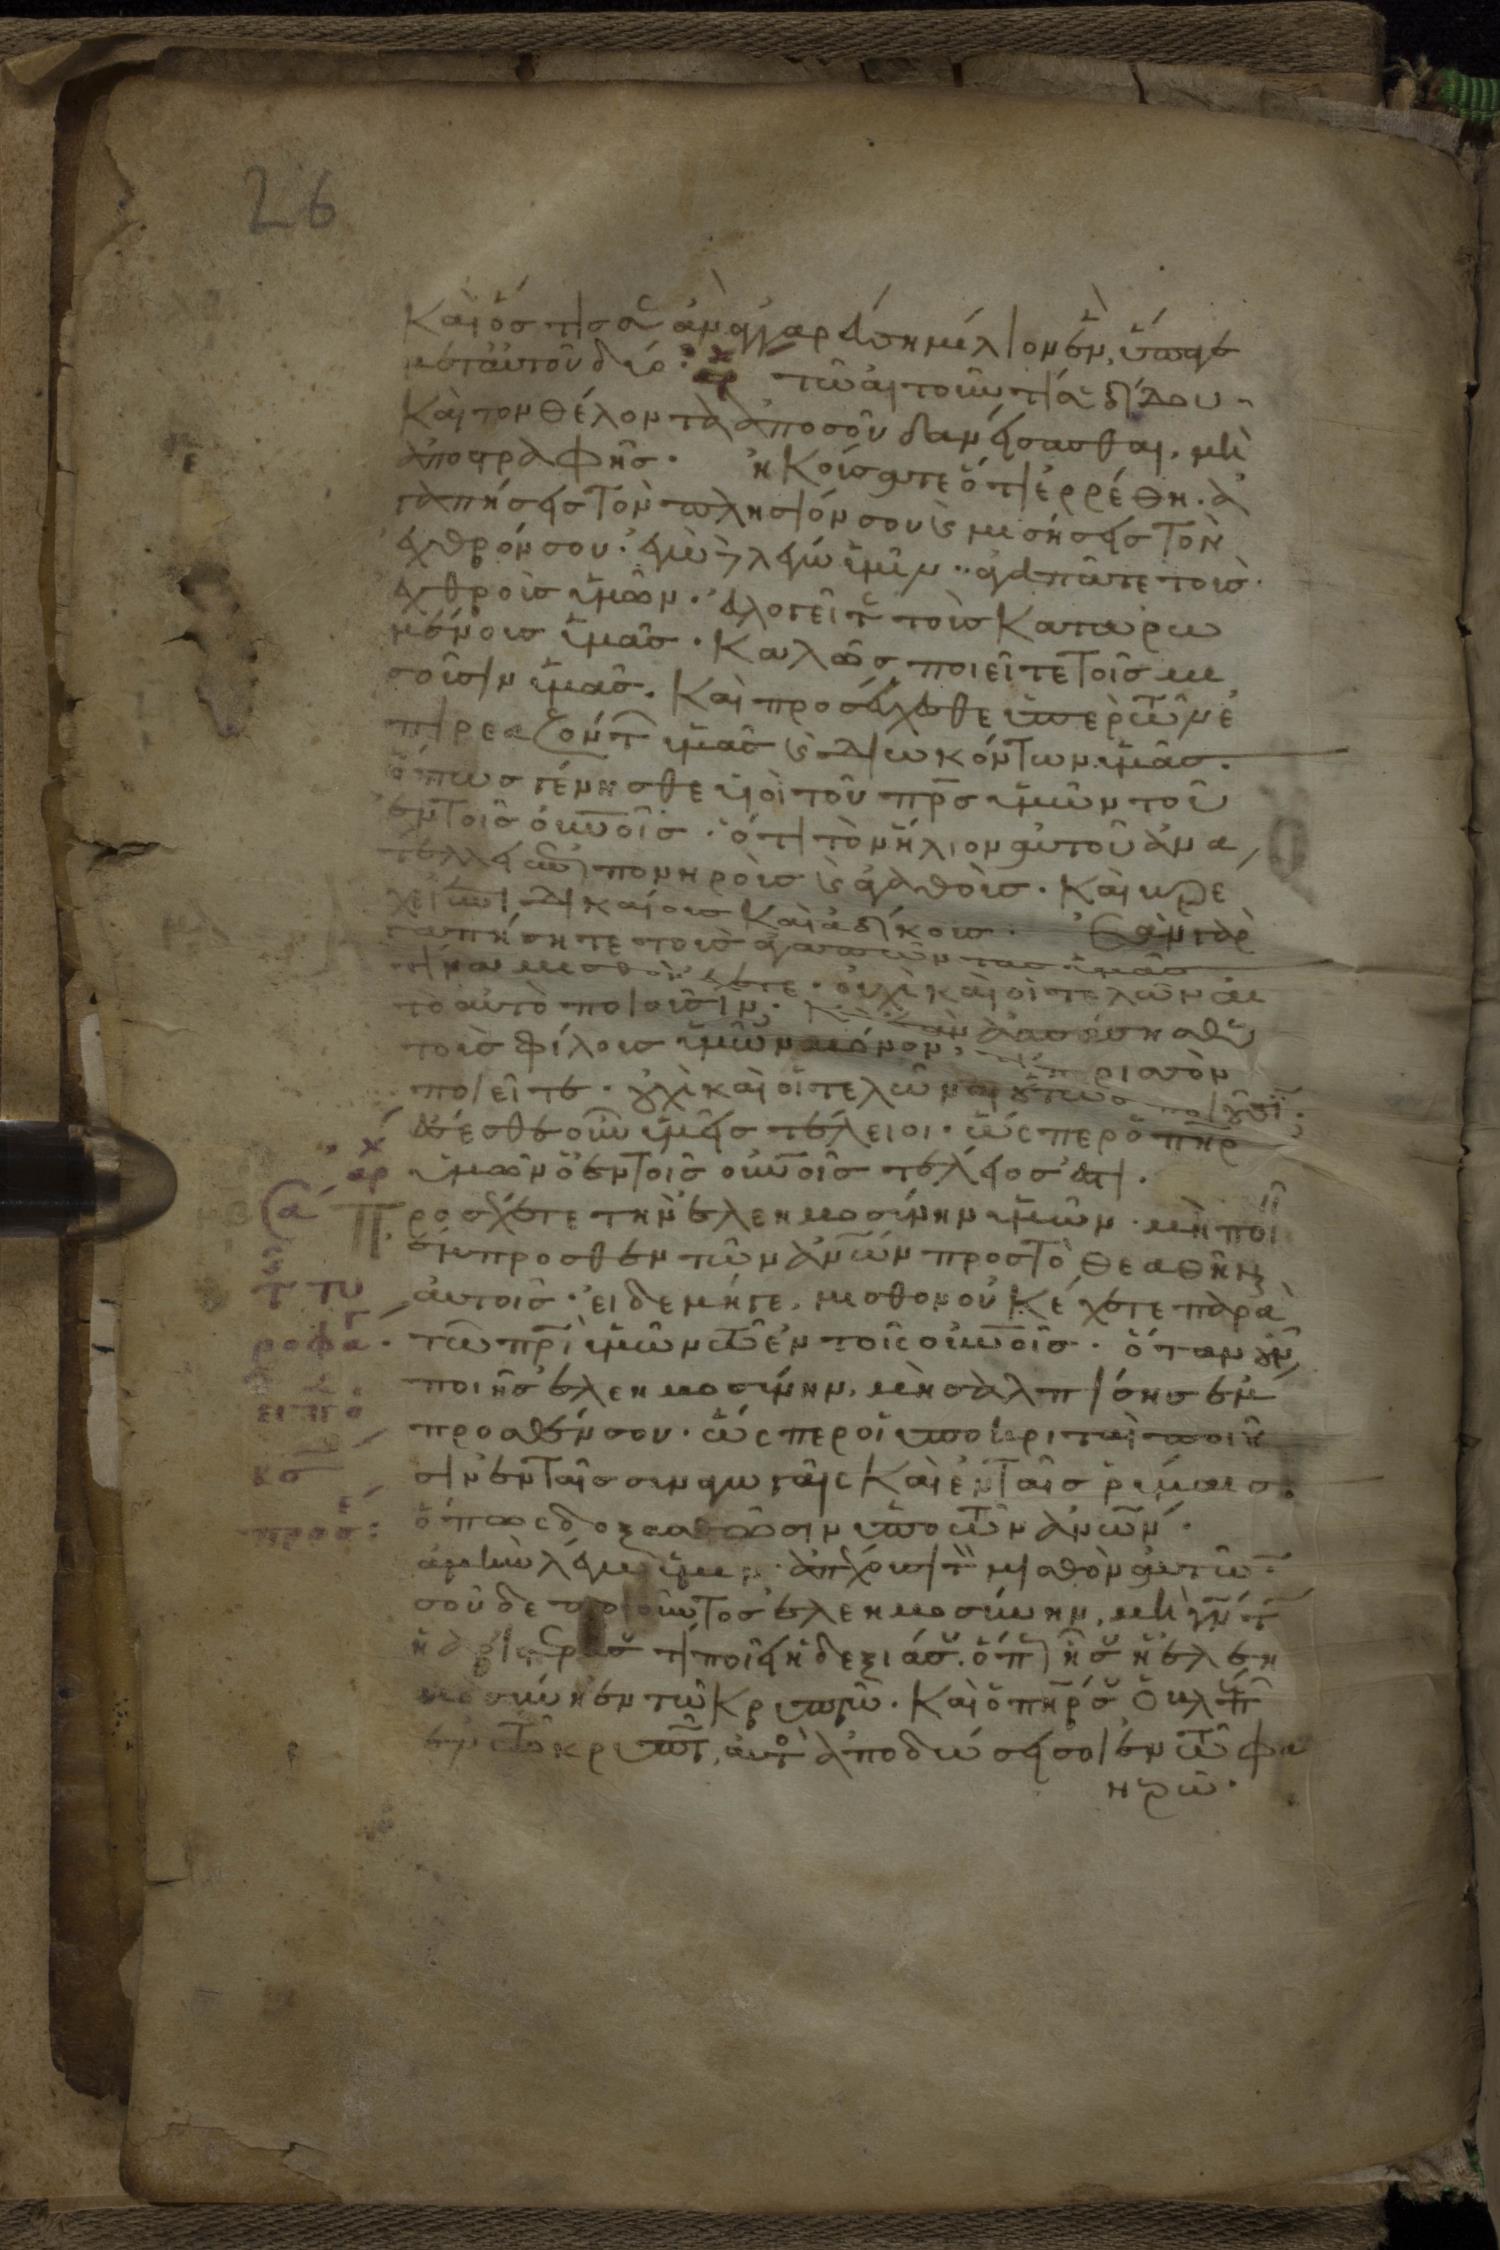 26
Καὶ ὅστις σε ἀγγαρεύσει μίλιον ἕν, ὕπαγε
μετ αὐτοῦ δύο· ἀρ τῶ αἰτοῦντί σε δίδου
Καὶ τον θέλοντα ἀπο σοῦ δανείσασθαι, μὴ
ἀποστραφῆς· ἠκούσατε ὅτι ἐρρέθη· ἀ
γαπήσεις τὸν πλησίον σου καὶ μισήσεις τὸν
ἐχθρόν σου· ἐγὼ δὲ λέγω ὑμῖν· ἀγαπᾶτε τοὺς
ἐχθροὺς ὑμῶν· εὐλογεῖτε τοὺς Καταρω
μένους ὑμᾶς· Καλῶς ποιεῖτε τοῖς μι
σοῦσιν ὑμᾶς· Καὶ προσεύχεσθε ὑπερ τῶν ἐ
πηρεαζόντων ὑμᾶς καὶ διωκόντων ὑμᾶς·
ὅπως γένησθε υἱοὶ τοῦ πρς ὑμῶν τοῦ
ἐν τοῖς οὐνοῖς· ὅτι τὸν ἥλιον αὐτοῦ ἀνα
τέλλει ἐπὶ πονηροὺς καὶ ἀγαθοὺς· Καὶ βρέ
χει ἐπὶ δικαίους Καὶ ἀδίκους· Ἐὰν γὰρ
ἀγαπήσητε τοὺς ἀγαπῶντας ὑμᾶς
τίνα μισθὸν ἔχετε· οὐχὶ καὶ οἱ τελῶναι
τὸ αὐτὸ ποιοῦσιν· Καὶ ἐὰν ἀσπάσησθε
τοὺς φίλους ὑμῶν μόνον, τί περισσὸν
ποιεῖτε· οὐχὶ καὶ οἱ τελῶναι οὕτως ποιοῦσιν·
ἔσεσθε οὖν ὑμεῖς τέλειοι· ὥσπερ ὁ πηρ
ὑμῶν ὁ ἐν τοῖς οὐνοῖς τέλειος ἐστι·
ἀρ
Προσέχετε τὴν ἐλεημοσύνην ὑμῶν· μὴ ποιεῖν
ἔμπροσθεν τῶν ἀνων προς τὸ θεαθῆναι
αὐτοῖς· εἰ δε μήγε, μισθον οὐκ ἔχετε παρὰ
τῶ πρι ὑμῶν τῶ ἐν τοῖς οὐνοῖς· ὅταν οὖν
ποιῆς ἐλεημοσύνην, μὴ σαλπίσης ἔμ
προσθέν σου· ὥσπερ οἱ ὑποκριταὶ ποιοῦ
σιν ἐν ταῖς συναγωγαῖς Καὶ ἐν ταῖς ῥύμαις·
ὅπως δοξασθῶσιν ὑπο τῶν ἀνων·
ἀμὴν λέγω ὑμιν· ἀπέχουσι τὸν μισθὸν αὐτῶν·
σοῦ δε ποιοῦντος ἐλεημοσύνην, μὴ γνώτω
ἡ ἀριστερά σου τί ποιεῖ ἡ δεξιά σου· ὅπως ἦ σου ἡ ἐλεη
μοσύνη ἐν τῶ Κρυπτῶ· Καὶ ὁ πηρ σου ὁ βλέπων
ἐν τῶ κρυπτῶ, αὐτὸς ἀποδώσει σοι ἐν τῶ φα
νερῶ·